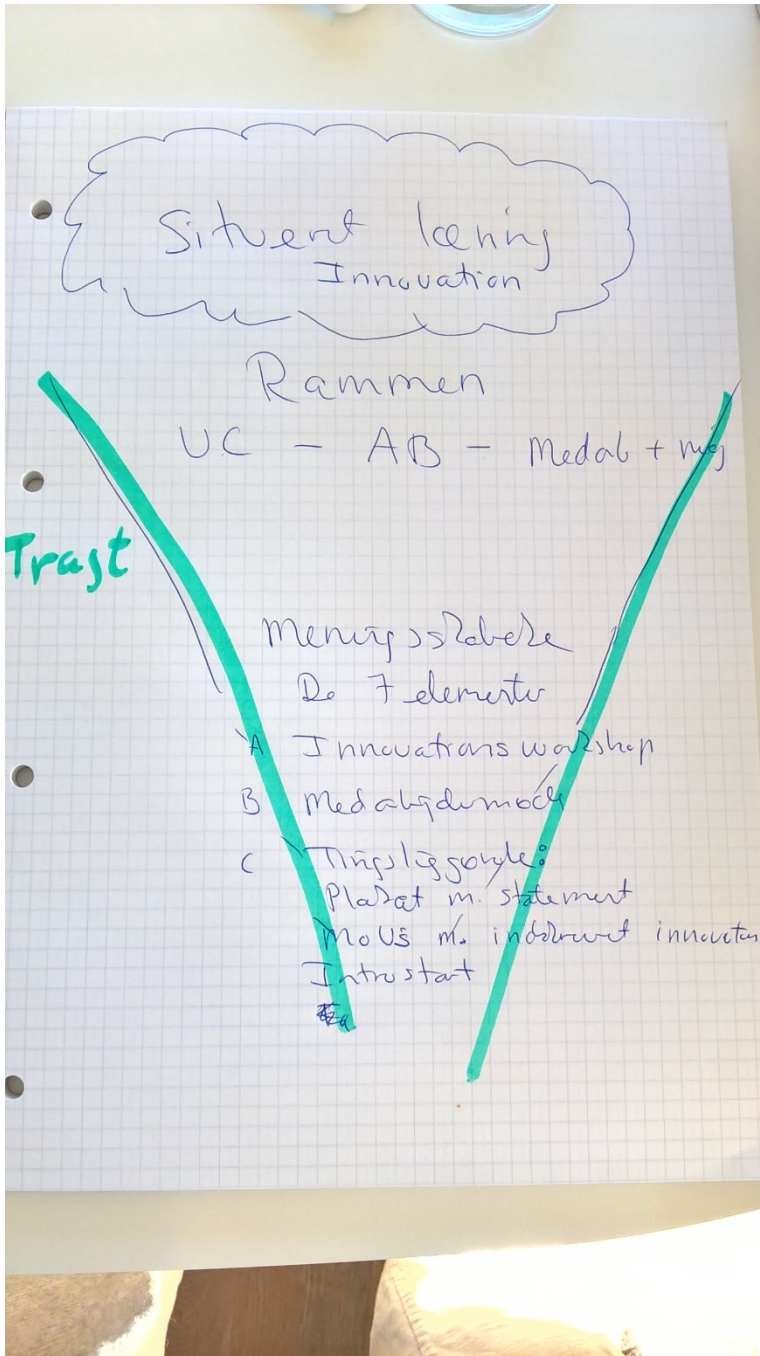 Situeret læring
Innovation
Rammen
UC - AB - Medab + mig
Tragt
Meningsskabelse
De 7 elementer
A Innovationsworkshop
B Medabgdermøde
C Tingsliggørelse:
Plakat m. statement
MoUs m. indskrevet innovation
Introstart